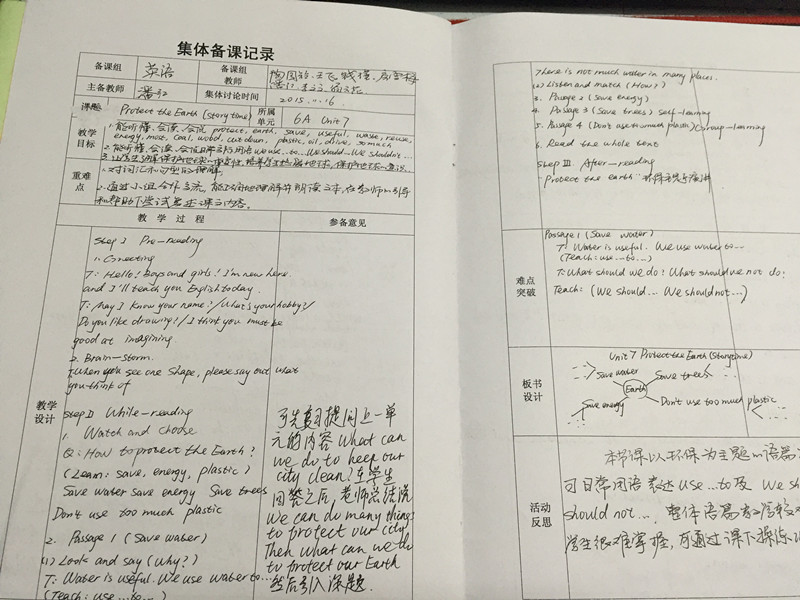 集体备课记录
备课组 英语 备课组教师
主备教师 集体讨论时间 2015.11.16
课题 Protect the Earth (story time) 所属单元 6A Unit 7
教学目标 1. 能听懂、会读、会说 protect, earth, save, useful, waste, reuse,
energy, most, coal, wood, cut down, plastic, oil, drive, so much
2. 能听懂、会读、会说日常交际用语 We use...to... We should... We shouldn't...
重难点 1. 对词汇和句型的理解.
2. 通过小组合作交流, 能正确地理解并朗读课文, 在教师的引导
和帮助下尝试复述课文内容.
教学过程 参备意见
教学设计
Step I Pre-reading
1. Greeting
T: Hello! boys and girls! I'm new here.
and I'll teach you English today.
T: May I know your name?/What's your hobby?/
Do you like drawing?/I think you must be
good at imagining
2. Brain-storm.
T: When you see one shape, please say out what
you think of
Step II While-reading
1. Watch and choose
Q: How to protect the Earth?
(Learn: save, energy, plastic)
Save water save energy Save trees
Don't use too much plastic
2. Passage 1 (Save water)
(1) Look and say (Why?)
T: Water is useful. We use water to...
(Teach: use...to...)
可先复习提问上一单
元的内容 What can
we do to keep our
city clean? 在学生
回答之后, 老师总结说
We can do many things
to protect our city.
Then what can we do
to protect our Earth
然后引入课题.
There is not much water in many places.
(2) Listen and match (How?)
3. Passage 2 (Save energy)
4. Passage 3 (Save trees) self-learning
5. Passage 4 (Don't use too much plastic) Group-learning
6. Read the whole text
Step III After-reading
Protect the earth
难点突破
Passage 1 (Save water)
T: Water is useful. We use water to...
(Teach: use...to...)
T: What should we do? What should we not do?
Teach: (We should... We should not...)
板书设计
Unit 7 Protect the Earth (Story time)
Save water Save trees
Earth
Save energy Don't use too much plastic
活动反思
本节课以环保为主题的语篇
可日常用语表达 use...to 及 We sh
should not..., 整体语篇
学生很难掌握, 可通过课下操练